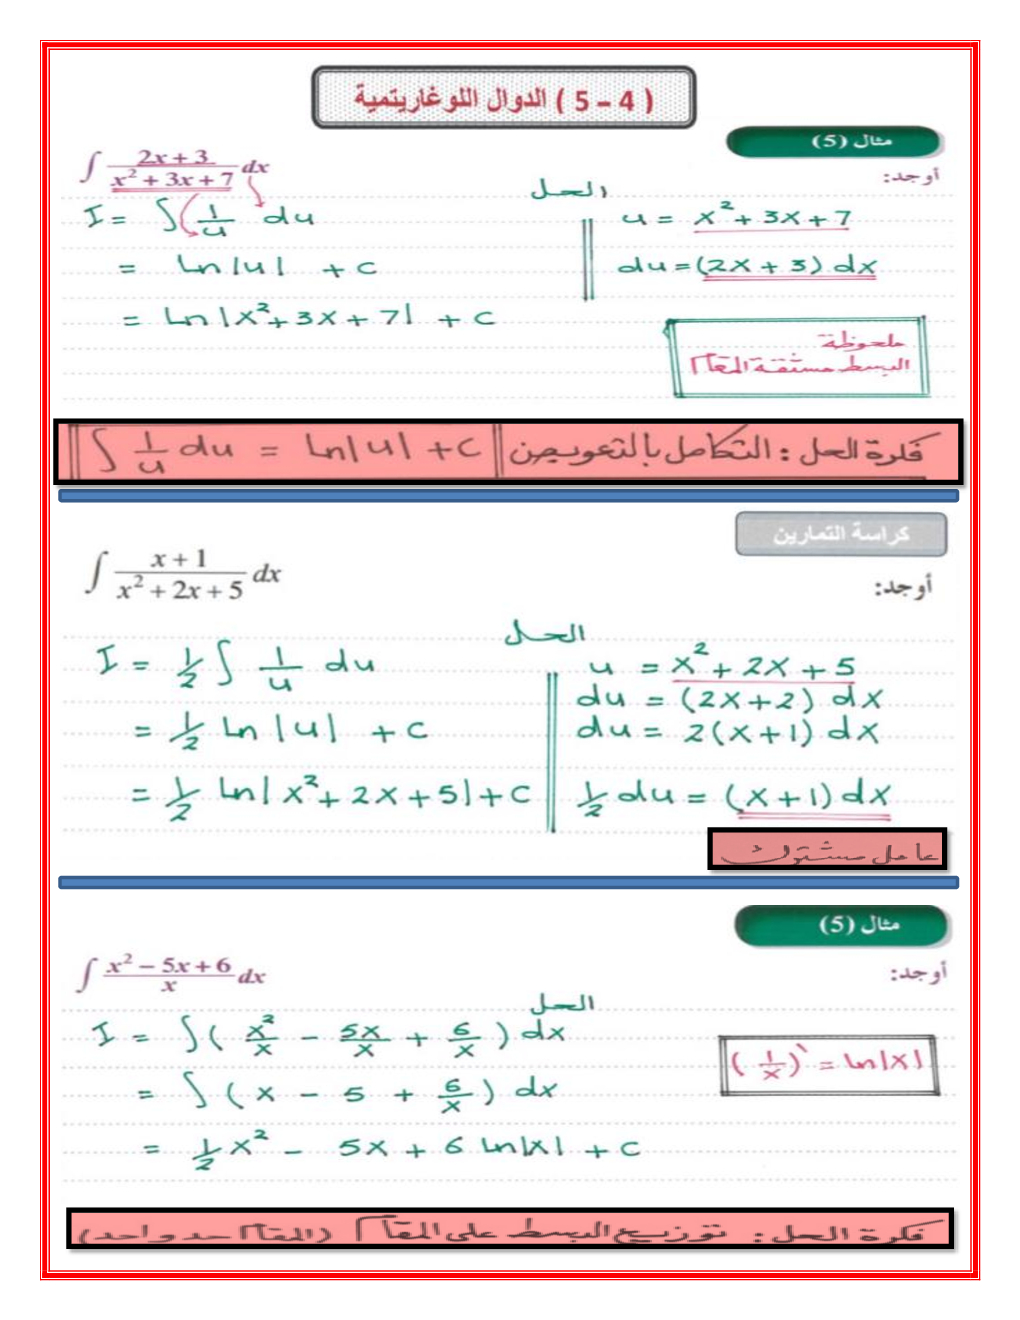 ( 5 – 4 ) الدوال اللوغاريتمية
مثال (5)
أوجد:
∫ (2x + 3)/(x² + 3x + 7) dx
الحل
I = ∫ (1/u) du
u = x² + 3x + 7
= Ln|u| + c
du = (2x + 3) dx
= Ln|x² + 3x + 7| + c
ملحوظة
البسط مشتقة المقام
فكرة الحل : التكامل بالتعويض ∫ (1/u) du = Ln|u| + c
كراسة التمارين
أوجد:
∫ (x + 1)/(x² + 2x + 5) dx
الحل
I = ½ ∫ (1/u) du
u = x² + 2x + 5
du = (2x + 2) dx
= ½ Ln|u| + c
du = 2(x + 1) dx
= ½ Ln|x² + 2x + 5| + c
½ du = (x + 1) dx
عامل مشترك
مثال (5)
أوجد:
∫ (x² − 5x + 6)/x dx
الحل
I = ∫ ( x²/x − 5x/x + 6/x ) dx
(1/x)` = Ln|x|
= ∫ ( x − 5 + 6/x ) dx
= ½ x² − 5x + 6 Ln|x| + c
فكرة الحل : توزيع البسط على المقام (المقام حد واحد)